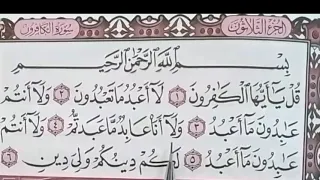 الجزء الثلاثون سورة الكافرون
بِسْمِ اللَّهِ الرَّحْمَٰنِ الرَّحِيمِ
قُلْ يَا أَيُّهَا الْكَافِرُونَ ١ لَا أَعْبُدُ مَا تَعْبُدُونَ ٢ وَلَا أَنتُمْ
عَابِدُونَ مَا أَعْبُدُ ٣ وَلَا أَنَا عَابِدٌ مَّا عَبَدتُّمْ ٤ وَلَا أَنتُمْ
عَابِدُونَ مَا أَعْبُدُ ٥ لَكُمْ دِينُكُمْ وَلِيَ دِينِ ٦